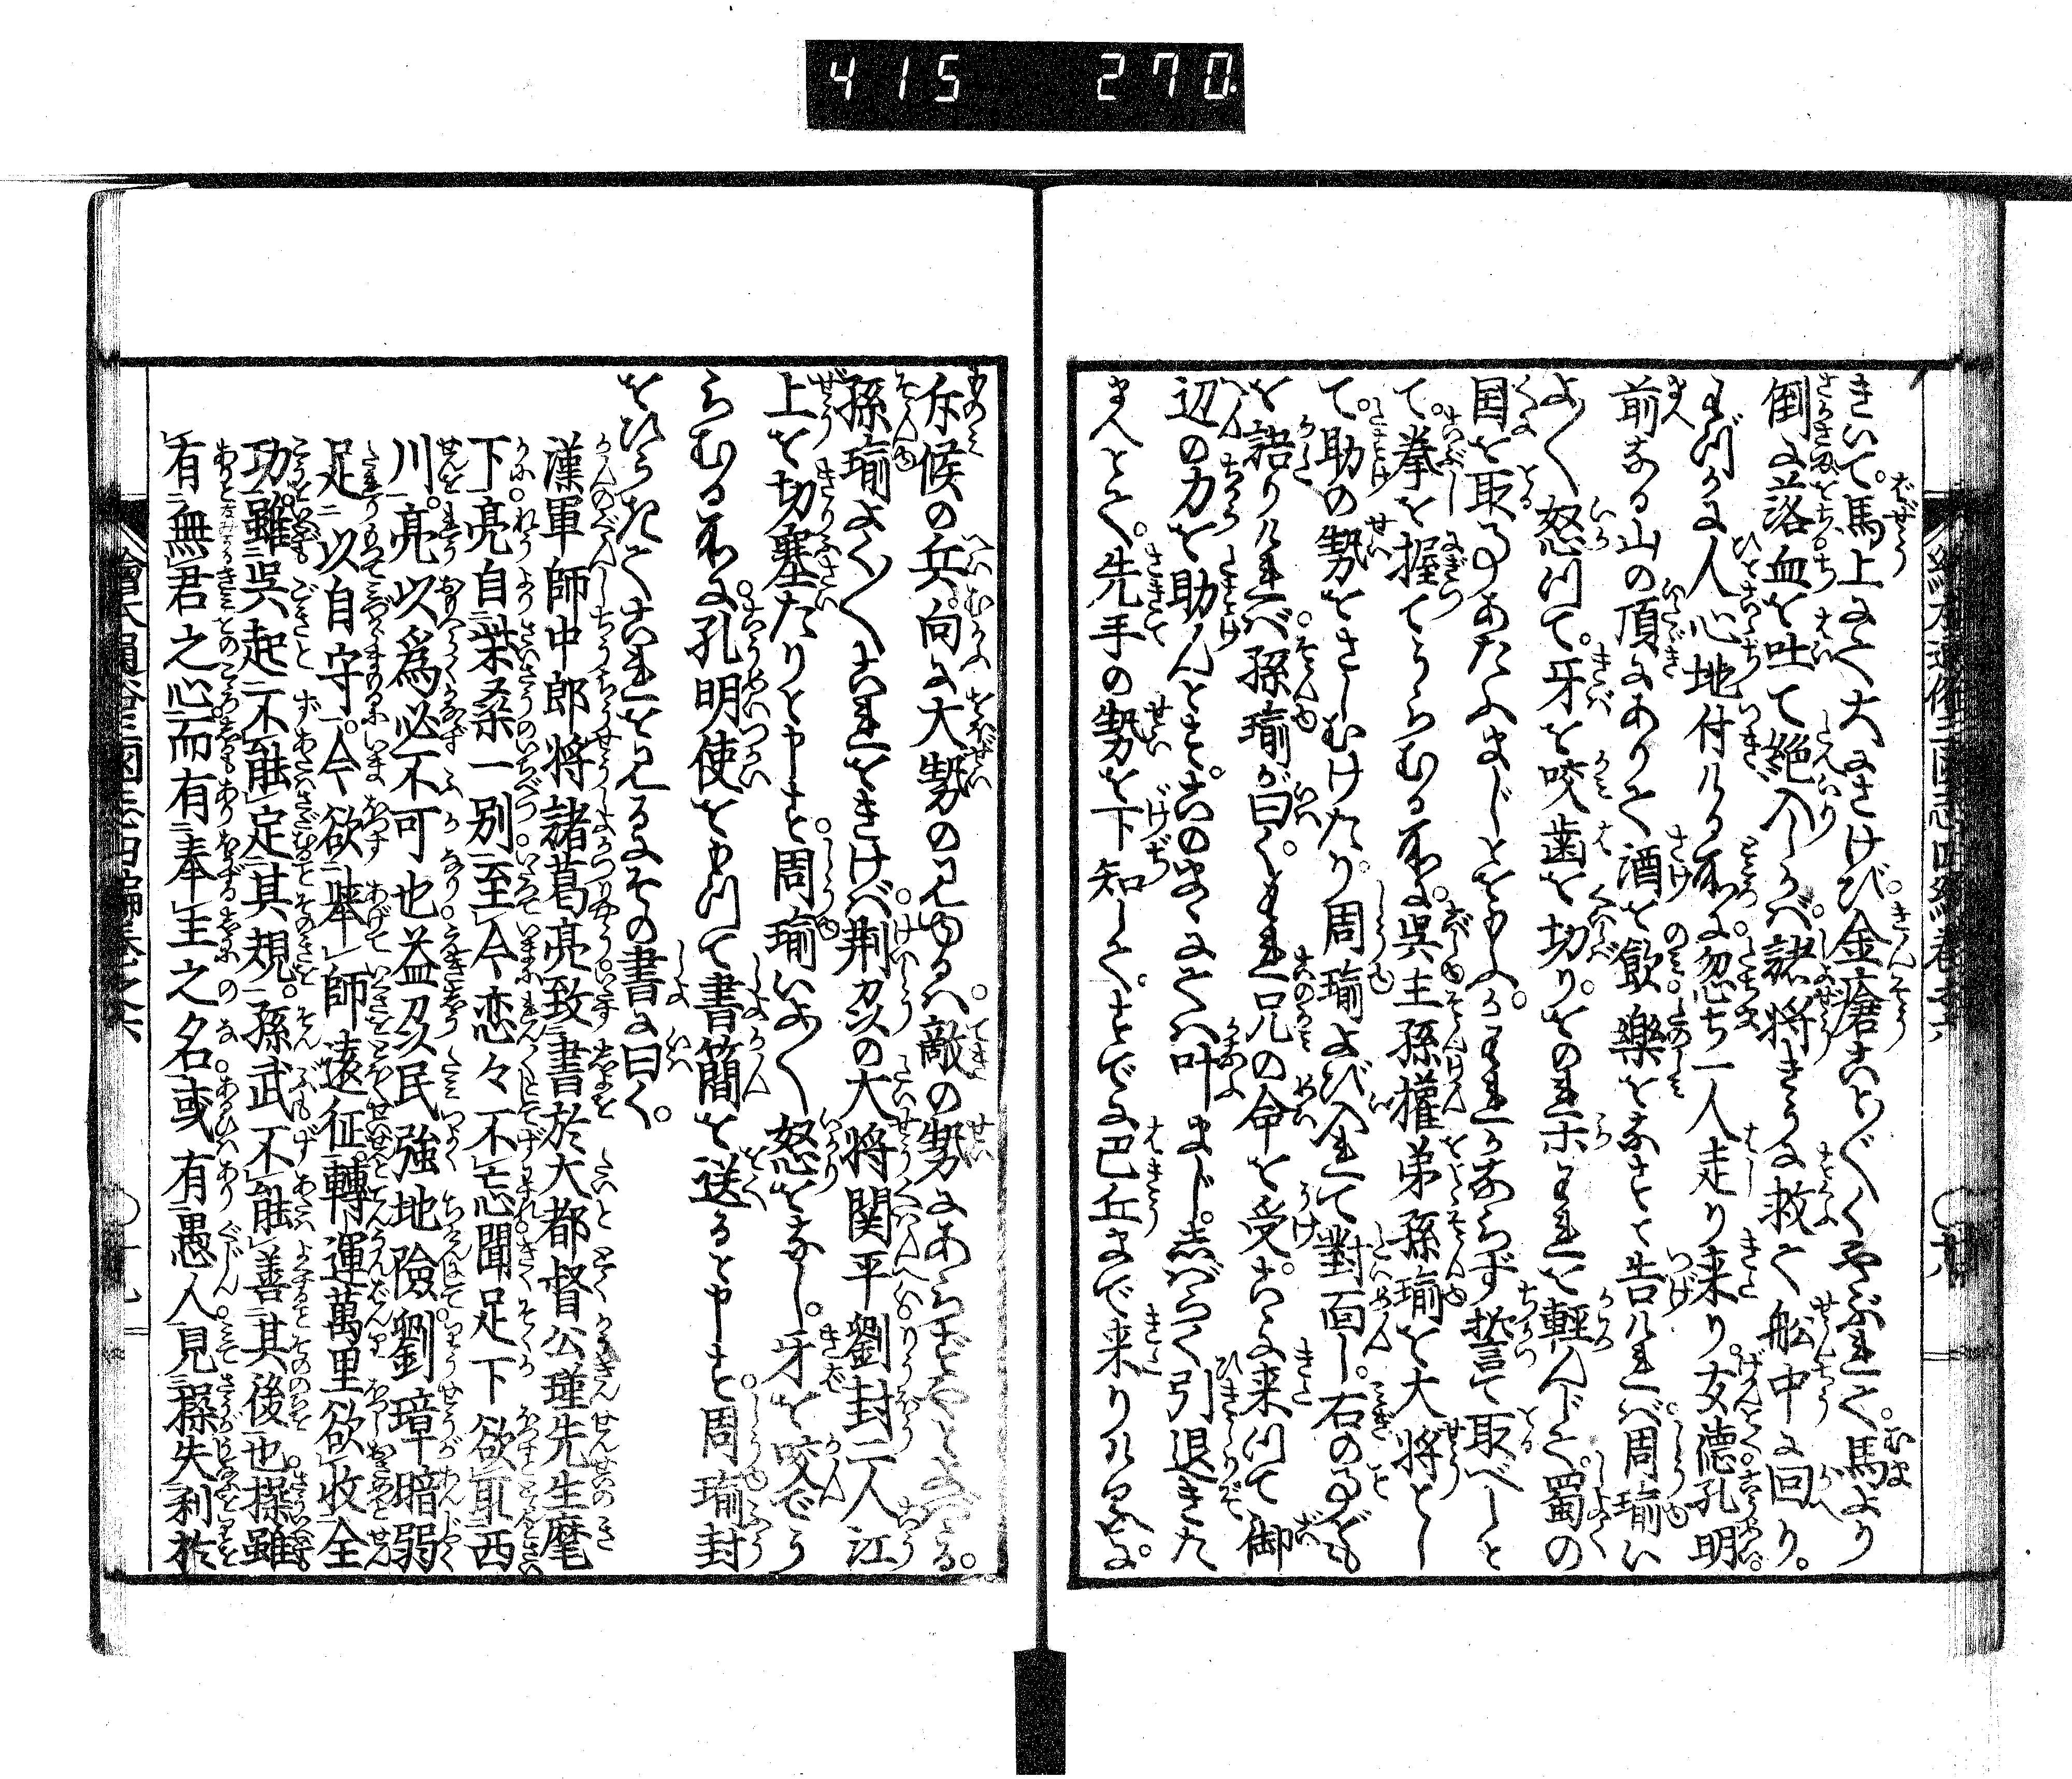 415 270
きいて。馬上にて大にさけび。金瘡こと〴〵くやぶれて。馬より
倒に落血を吐て絶入しかば。諸将きうに救て舩中に回り。
しづかに人心地付ける所に。忽ち一人走り来り。玄徳孔明
前なる山の頂にありて酒を飲樂をなさると告ければ。周瑜い
よ〳〵怒つて。牙を咬歯を切り。そのれらわれを輕んじて。蜀の
国を取事あたふまじとをもふか。われかならず誓て取べしと
て。拳を握てうらむる所に。呉主孫權弟孫瑜を大将とし
て。助の勢をさしむけたり。周瑜よび入れて對面し。右の事ども
を語りければ。孫瑜が曰く。それ兄の命を受。こゝに来つて御
辺の力を助んとす。このまゝにては叶まじ。志ばらく引退きた
まへとて。先手の勢を下知して。すでに巴丘まで来りける所に。
斥候の兵。向に大勢の見ゆるハ。敵の勢にあらずやと
孫瑜よく〳〵これをきけば。荆及の大将関平劉封二人江
上を切塞たりと申すと。周瑜いよ〳〵怒をなし。牙を咬でう
らむる所に。孔明使をやつて書簡を送ると申す。周瑜封
をひらきてこれを見るにその書に曰く。
漢軍師中郎将諸葛亮致書於大都督公瑾先生麾
下。亮自柴桑一別至今恋々不忘聞足下欲取西
川。亮以為必不可也益及民強地險劉璋暗弱
足以自守。今欲挙師遠征轉運萬里欲收全
功。雖呉起不能定其規。孫武不能善其後也操雖
有無君之心而有奉主之名或有愚人見操失利於